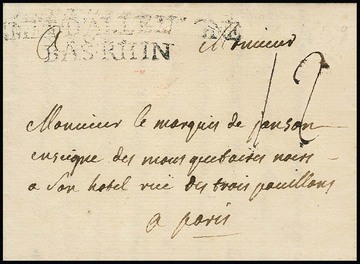 BAS RHIN
Monsieur
12
Monsieur le marquis de janson
enseigne des mousquetaires noirs
a Son hotel rüe des trois pavillons
a paris